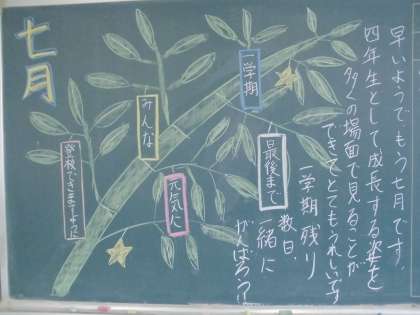 七月
早いようでもう七月です。
四年生として成長する姿を
多くの場面で見ることが
できてとてもうれしいです
一学期残り
数日、
一緒に
がんばろう!!
一学期
最後まで
みんな
元気に
登校できますように